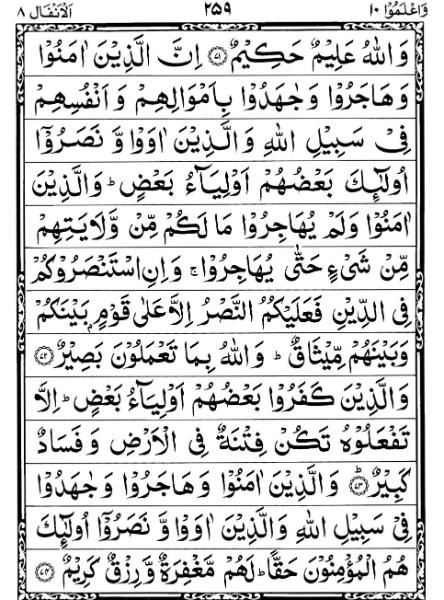 وَاعْلَمُوْۤا ١٠ ٢٥٩ اَلْاَنْفَال ٨
وَاللّٰهُ عَلِيْمٌ حَكِيْمٌ ﴿٧١﴾ اِنَّ الَّذِيْنَ اٰمَنُوْا
وَهَاجَرُوْا وَجٰهَدُوْا بِاَمْوَالِهِمْ وَاَنْفُسِهِمْ
فِيْ سَبِيْلِ اللّٰهِ وَالَّذِيْنَ اٰوَوْا وَّنَصَرُوْۤا
اُولٰٓئِكَ بَعْضُهُمْ اَوْلِيَآءُ بَعْضٍ ؕ وَالَّذِيْنَ
اٰمَنُوْا وَلَمْ يُهَاجِرُوْا مَا لَكُمْ مِّنْ وَّلَايَتِهِمْ
مِّنْ شَيْءٍ حَتّٰى يُهَاجِرُوْا ۚ وَاِنِ اسْتَنْصَرُوْكُمْ
فِي الدِّيْنِ فَعَلَيْكُمُ النَّصْرُ اِلَّا عَلٰى قَوْمٍۭ بَيْنَكُمْ
وَبَيْنَهُمْ مِّيْثَاقٌ ؕ وَاللّٰهُ بِمَا تَعْمَلُوْنَ بَصِيْرٌ ﴿٧٢﴾
وَالَّذِيْنَ كَفَرُوْا بَعْضُهُمْ اَوْلِيَآءُ بَعْضٍ ؕ اِلَّا
تَفْعَلُوْهُ تَكُنْ فِتْنَةٌ فِي الْاَرْضِ وَفَسَادٌ
كَبِيْرٌ ؕ﴿٧٣﴾ وَالَّذِيْنَ اٰمَنُوْا وَهَاجَرُوْا وَجٰهَدُوْا
فِيْ سَبِيْلِ اللّٰهِ وَالَّذِيْنَ اٰوَوْا وَّنَصَرُوْۤا اُولٰٓئِكَ
هُمُ الْمُؤْمِنُوْنَ حَقًّا ؕ لَهُمْ مَّغْفِرَةٌ وَّرِزْقٌ كَرِيْمٌ ﴿٧٤﴾